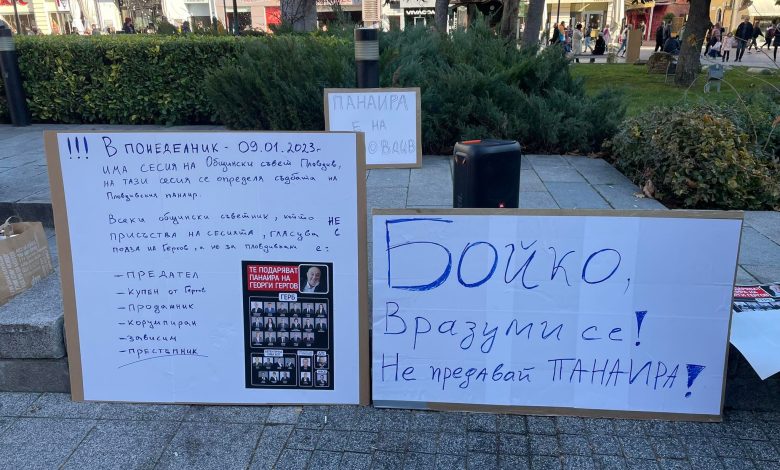 ПАНАИРА
Е НА
!!! В ПОНЕДЕЛНИК - 09.01.2023г.
ИМА СЕСИЯ НА Общински съвет Пловдив,
НА ТАЗИ СЕСИЯ СЕ ОПРЕДЕЛЯ СЪДБАТА НА
Пловдивския панаир.
Всеки общински съветник, който НЕ
ПРИСЪСТВА НА СЕСИЯТА, ГЛАСУВА В
ПОЛЗА НА Гергов, А НЕ ЗА ПЛОВДИВЧАНИ Е:
- ПРЕДАТЕЛ
- КУПЕН ОТ Гергов
- ПРОДАЖНИК
- КОРУМПИРАН
- ЗАВИСИМ
- ПРЕСТЪПНИК
ТЕ ПОДАРЯВАТ
ПАНАИРА НА
ГЕОРГИ ГЕРГОВ
ГЕРБ
БОЙКО,
Вразуми се!
Не предавай ПАНАИРА!